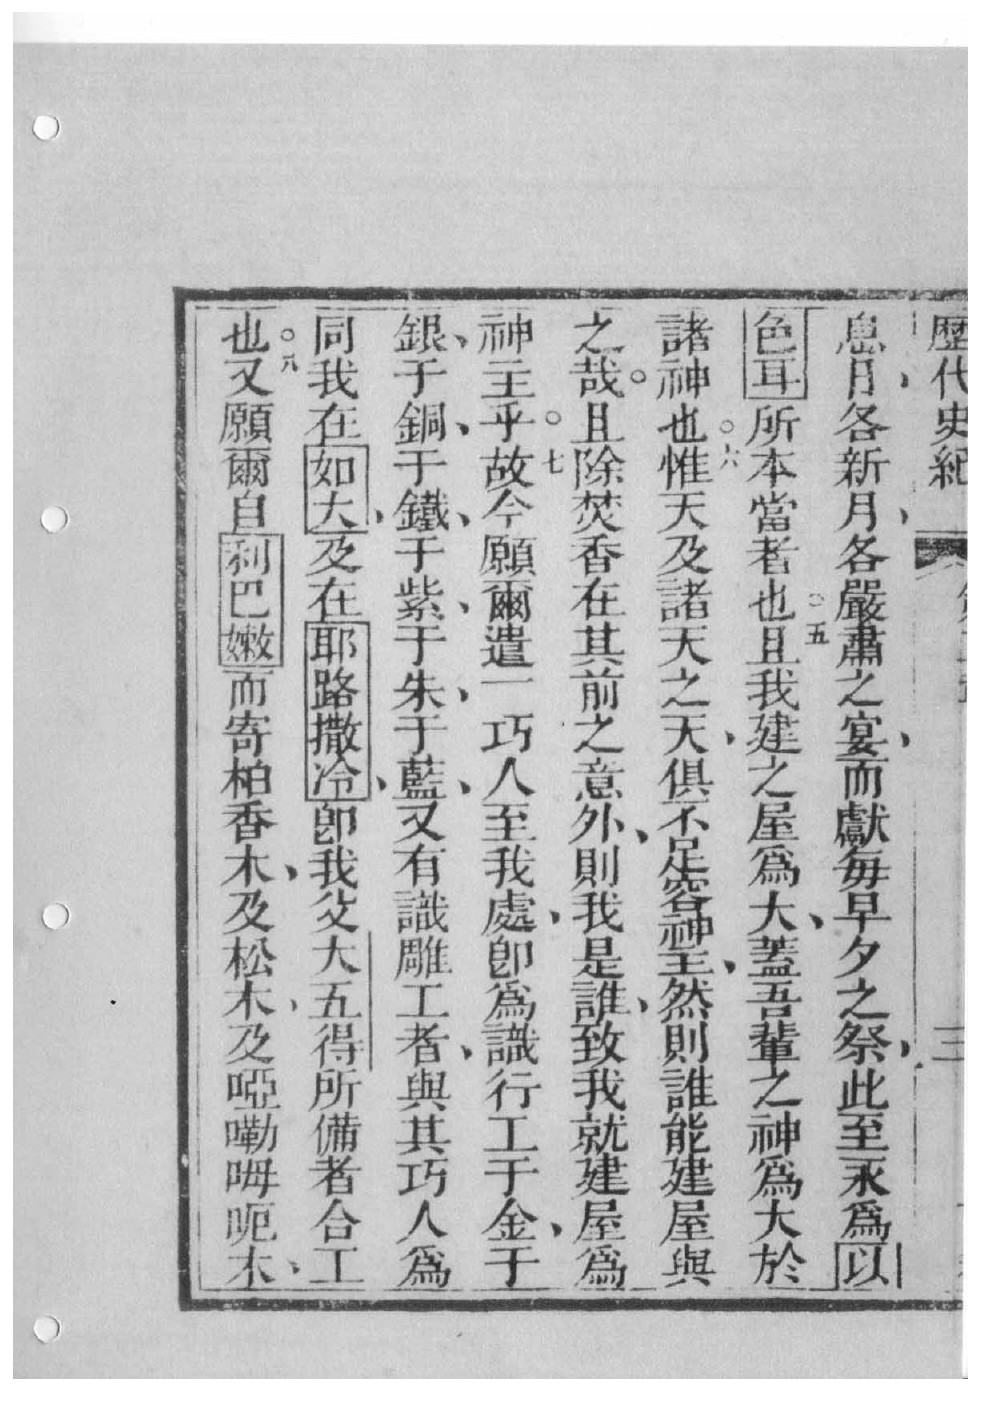 歷代史紀
三
息日各新月各嚴肅之宴而獻每早夕之祭此至永爲以
色耳所本當者也。五且我建之屋爲大蓋吾輩之神爲大於
諸神也。六惟天及諸天之天俱不足容神主然則誰能建屋與
之哉。且除焚香在其前之意外則我是誰致我就建屋爲
神主乎。七故今願爾遣一巧人至我處卽爲識行工于金于
銀于銅于鐵于紫于朱于藍又有識雕工者與其巧人爲
同我在如大及在耶路撒冷卽我父大五得所備者合工
也。八又願爾自利巴嫩而寄柏香木及松木及啞嘞呣呃木